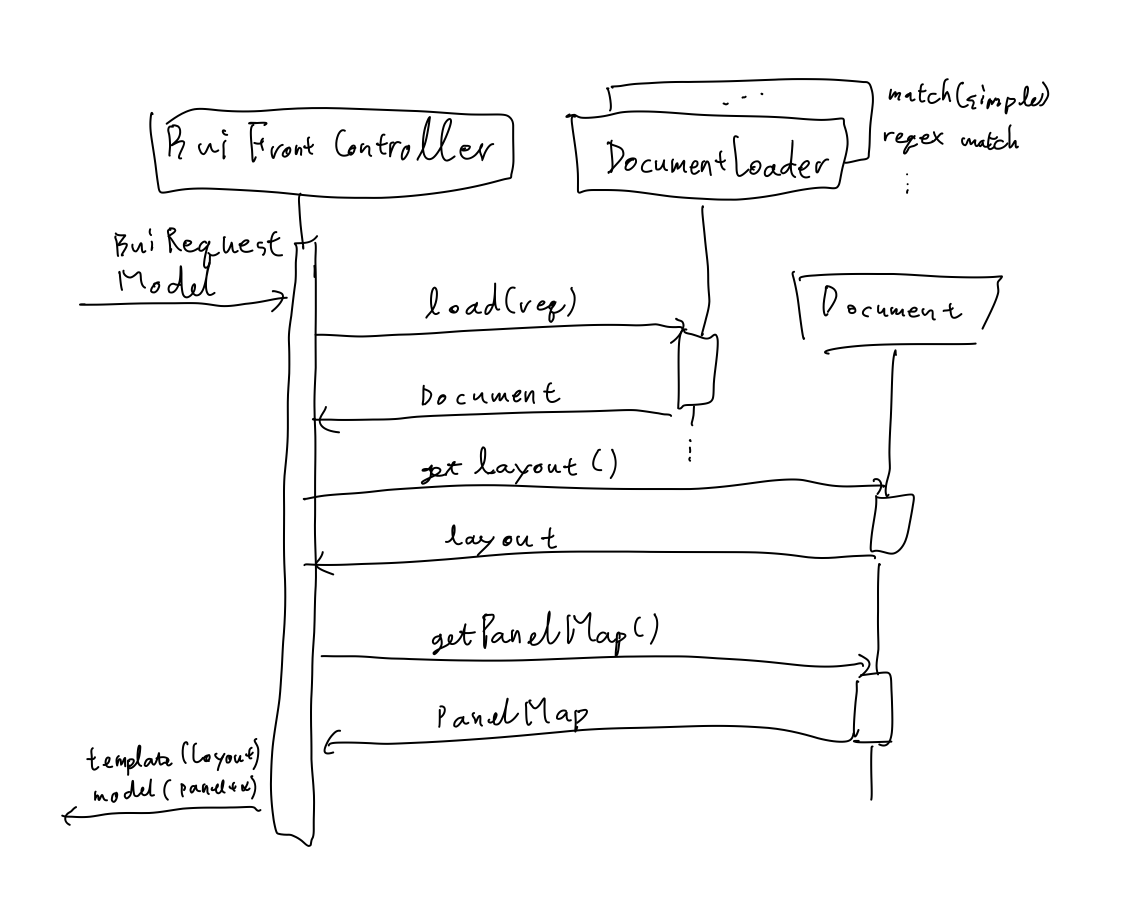 Bui Front Controller
...
DocumentLoader
match(simple)
regex match
⋮
Bui Request
Model
load(req)
Document
Document
get layout ()
layout
getPanelMap()
PanelMap
template (layout)
model (panel